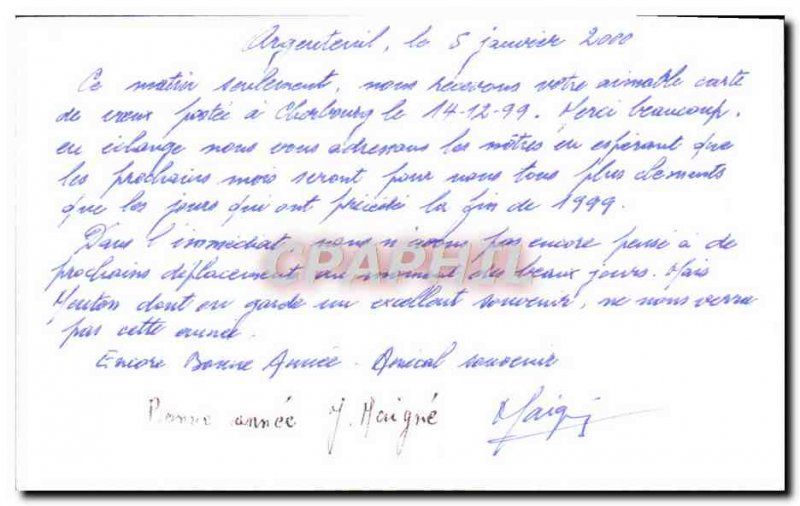 Argenteuil, le 5 janvier 2000
Ce matin seulement, nous recevons votre aimable carte
de vœux postée à Cherbourg le 14-12-99. Merci beaucoup,
en échange nous vous adressons les nôtres en espérant que
les prochains mois seront pour nous tous plus cléments
que les jours qui ont précédé la fin de 1999.
Dans l'immédiat, nous n'avons pas encore pensé à de
prochains déplacements au moment des beaux jours. Mais
Menton dont on garde un excellent souvenir, ne nous verra
pas cette année.
Encore Bonne Année. Amical souvenir
Bonne année J. Maigné Maigné
CPAPHIL